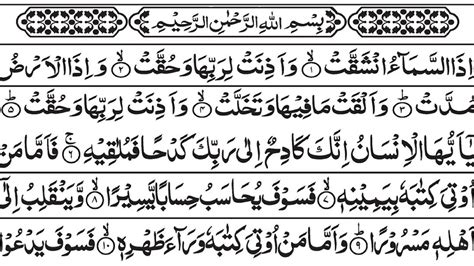 بِسْمِ اللهِ الرَّحْمٰنِ الرَّحِيْمِ
اِذَا السَّمَآءُ انْشَقَّتْ ۙ﴿۱﴾ وَاَذِنَتْ لِرَبِّهَا وَحُقَّتْ ۙ﴿۲﴾ وَاِذَا الْاَرْضُ
مُدَّتْ ۙ﴿۳﴾ وَاَلْقَتْ مَا فِيْهَا وَتَخَلَّتْ ۙ﴿۴﴾ وَاَذِنَتْ لِرَبِّهَا وَحُقَّتْ ؕ﴿۵﴾
يٰۤاَيُّهَا الْاِنْسَانُ اِنَّكَ كَادِحٌ اِلٰى رَبِّكَ كَدْحًا فَمُلٰقِيْهِ ۚ﴿۶﴾ فَاَمَّا مَنْ
اُوْتِيَ كِتٰبَهٗ بِيَمِيْنِهٖ ۙ﴿۷﴾ فَسَوْفَ يُحَاسَبُ حِسَابًا يَّسِيْرًا ۙ﴿۸﴾ وَّيَنْقَلِبُ اِلٰٓى
اَهْلِهٖ مَسْرُوْرًا ؕ﴿۹﴾ وَاَمَّا مَنْ اُوْتِيَ كِتٰبَهٗ وَرَآءَ ظَهْرِهٖ ۙ﴿۱۰﴾ فَسَوْفَ يَدْعُوْا